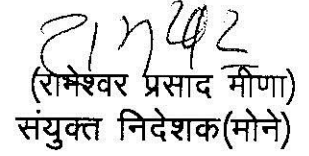 (रामेश्वर प्रसाद मीणा)
संयुक्त निदेशक(मोने)